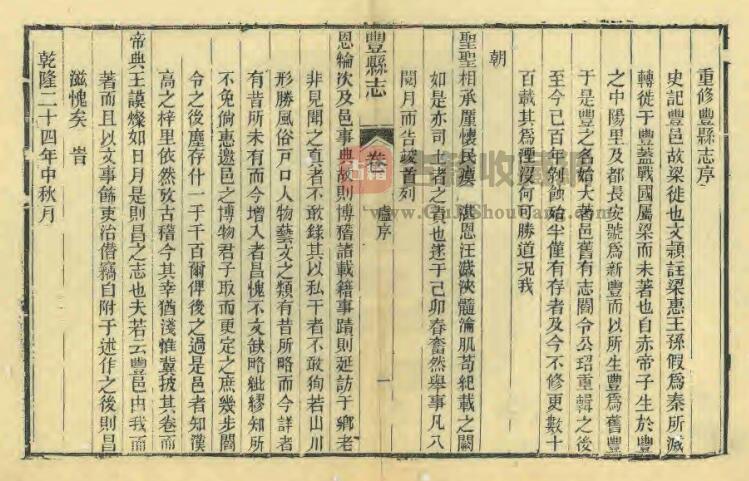 重修豐縣志序
史記豐邑故梁徙也文頴註梁惠王孫假爲秦所滅
轉徙于豐蓋戰國屬梁而未著也自赤帝子生於豐
之中陽里及都長安號爲新豐而以所生豐爲舊豐
于是豐之名始大著邑舊有志閻令公玿重輯之後
至今已百年剝蝕殆半僅有存者及今不修更數十
百載其爲湮沒何可勝道況我
朝
聖聖相承厪懷民瘼湛恩汪濊浹髓淪肌苟紀載之闕
如是亦司土者之責也遂于己卯春奮然舉事凡八
閱月而告竣首列
豐縣志
卷
盧序
一
恩綸次及邑事典故則博稽諸載籍事蹟則延訪于鄉老
非見聞之真者不敢錄其以私干者不敢狥若山川
形勝風俗戸口人物藝文之類有昔所略而今詳者
有昔所未有而今增入者昌愧不文缺略紕繆知所
不免倘惠邀邑之博物君子取而更定之庶幾步閻
令之後塵存什一于千百爾俾後之過是邑者知漢
高之梓里依然攷古稽今其幸猶淺惟冀披其卷而
帝典王謨燦如日月是則昌之志也夫若云豐邑由我而
著而且以文事飾吏治僭竊自附于述作之後則昌
滋愧矣旹
乾隆二十四年中秋月
古籍收藏网